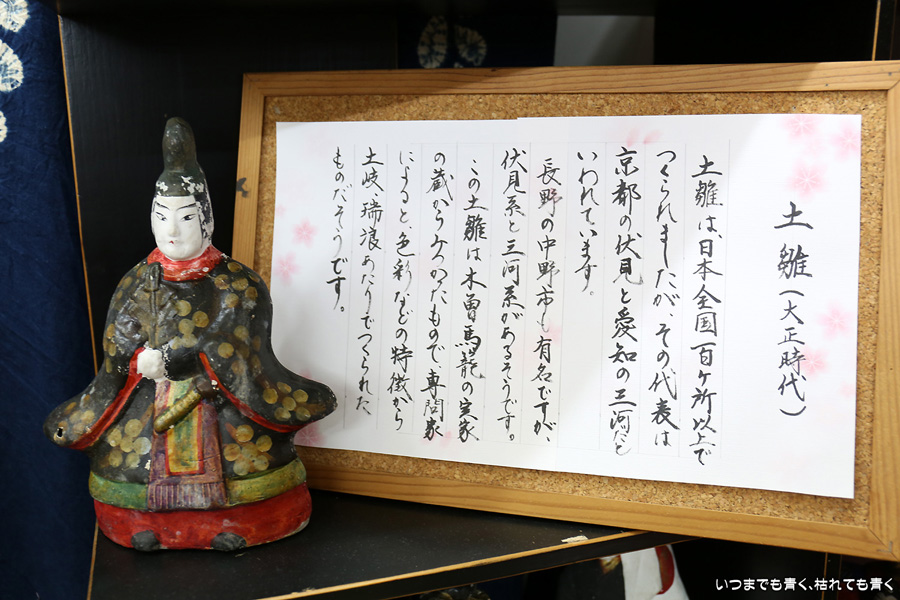 土雛（大正時代）
土雛は、日本全国百ケ所以上で
つくられましたが、その代表は
京都の伏見と愛知の三河だと
いわれています。
長野の中野市も有名ですが、
伏見系と三河系があるそうです。
この土雛は木曽馬籠の実家
の蔵からみつかったもので専門家
によると、色彩などの特徴から
土岐・瑞浪あたりでつくられた
ものだそうです。
いつまでも青く、枯れても青く